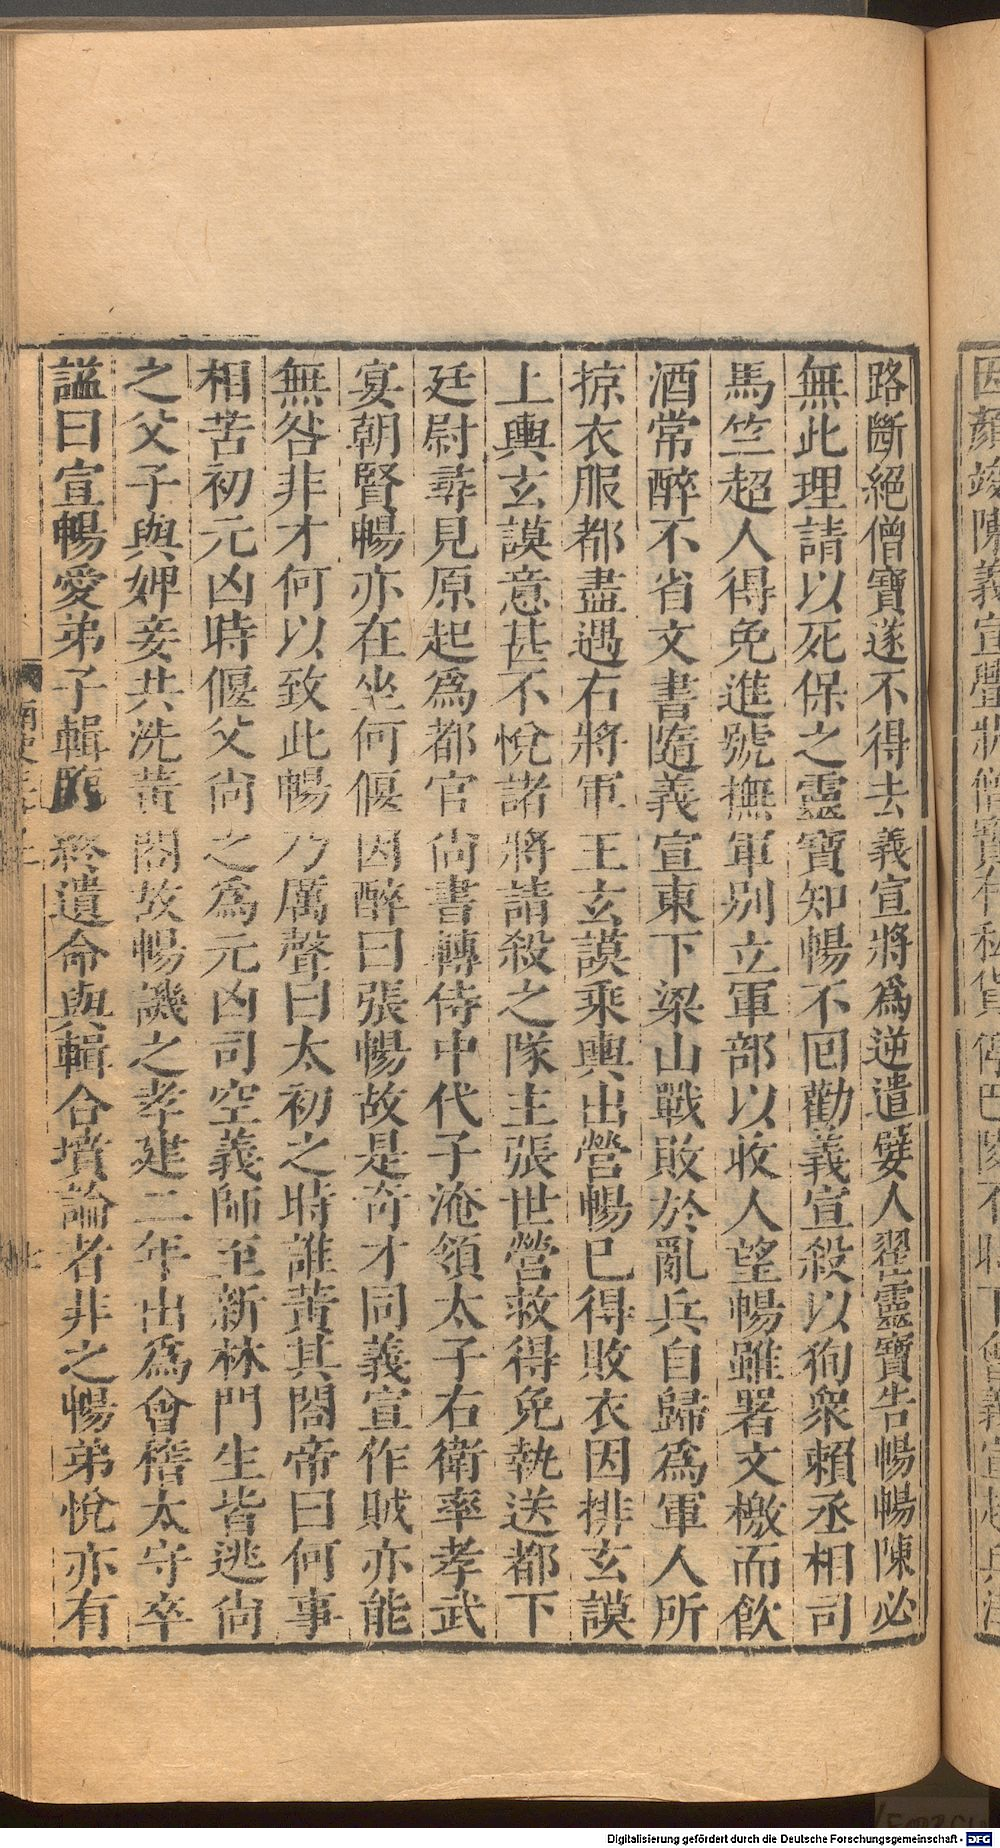 路斷絕僧寶遂不得去義宣將爲逆遣嬖人翟靈寶告暢暢陳必
無此理請以死保之靈寶知暢不回勸義宣殺以狥衆賴丞相司
馬竺超人得免進號撫軍别立軍部以收人望暢雖署文檄而飲
酒常醉不省文書隨義宣東下梁山戰敗於亂兵自歸爲軍人所
掠衣服都盡遇右將軍王玄謨乘輿出營暢已得敗衣因排玄謨
上輿玄謨意甚不悅諸將請殺之隊主張世營救得免執送都下
廷尉尋見原起爲都官尚書轉侍中代子淹領太子右衛率孝武
宴朝賢暢亦在坐何偃因醉曰張暢故是奇才同義宣作賊亦能
無咎非才何以致此暢乃厲聲曰太初之時誰黃其閤帝曰何事
相苦初元凶時偃父尚之爲元凶司空義師至新林門生皆逃尚
之父子與婢妾共洗黃閤故暢譏之孝建二年出爲會稽太守卒
謚曰宣暢愛弟子輯臨終遺命與輯合墳論者非之暢弟悅亦有
Digitalisierung gefördert durch die Deutsche Forschungsgemeinschaft - DFG